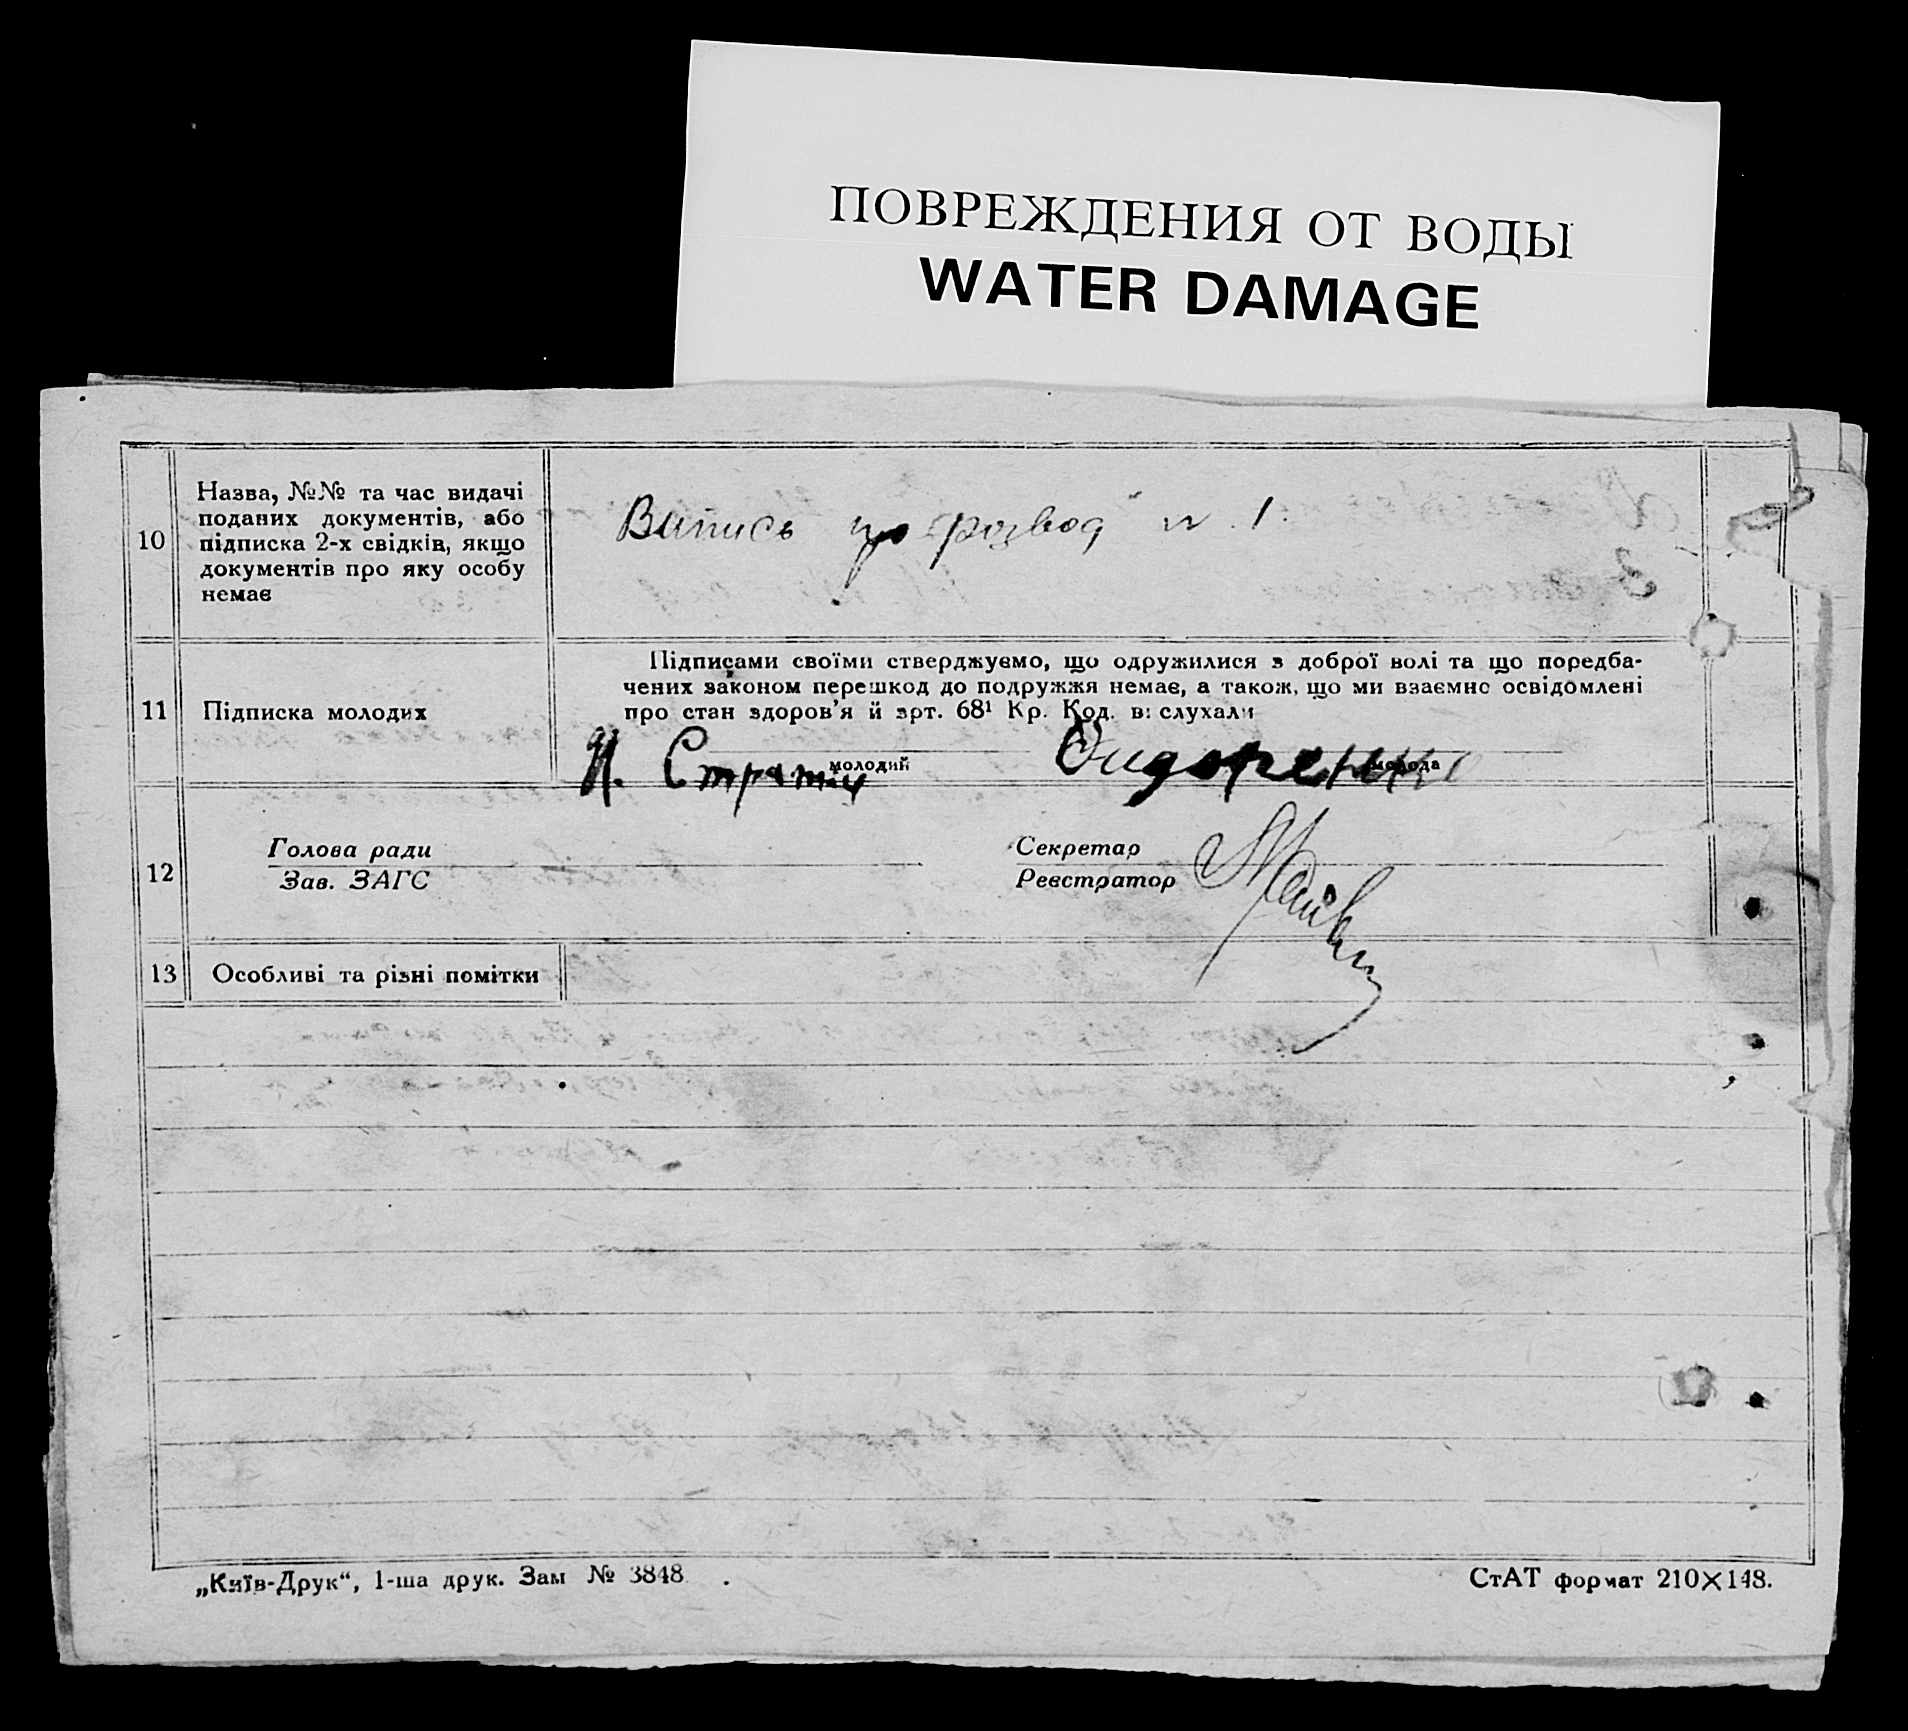 ПОВРЕЖДЕНИЯ ОТ ВОДЫ
WATER DAMAGE
10
Назва, №№ та час видачі
поданих документів, або
підписка 2-х свідків, якщо
документів про яку особу
немає
Випись про розвод № 1.
11
Підписка молодих
Підписами своїми стверджуємо, що одружилися з доброї волі та що передба-
чених законом перешкод до подружжя немає, а також, що ми взаємно освідомлені
про стан здоров'я й арт. 68¹ Кр. Код. вислухали
Н.
молодий
молода
12
Голова ради
Зав. ЗАГС
Секретар
Реєстратор
13
Особливі та різні помітки
„Київ-Друк“, 1-ша друк. Зам № 3848
СтАТ формат 210×148.